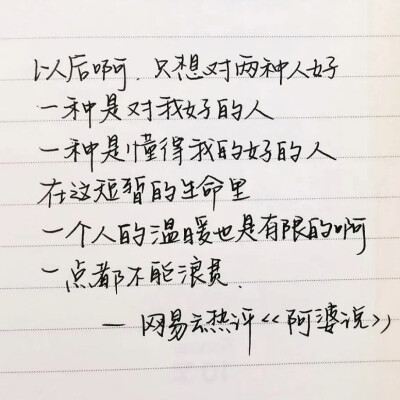 以后啊，只想对两种人好
一种是对我好的人
一种是懂得我的好的人
在这短暂的生命里
一个人的温暖也是有限的啊
一点都不能浪费.
— 网易云热评《阿婆说》